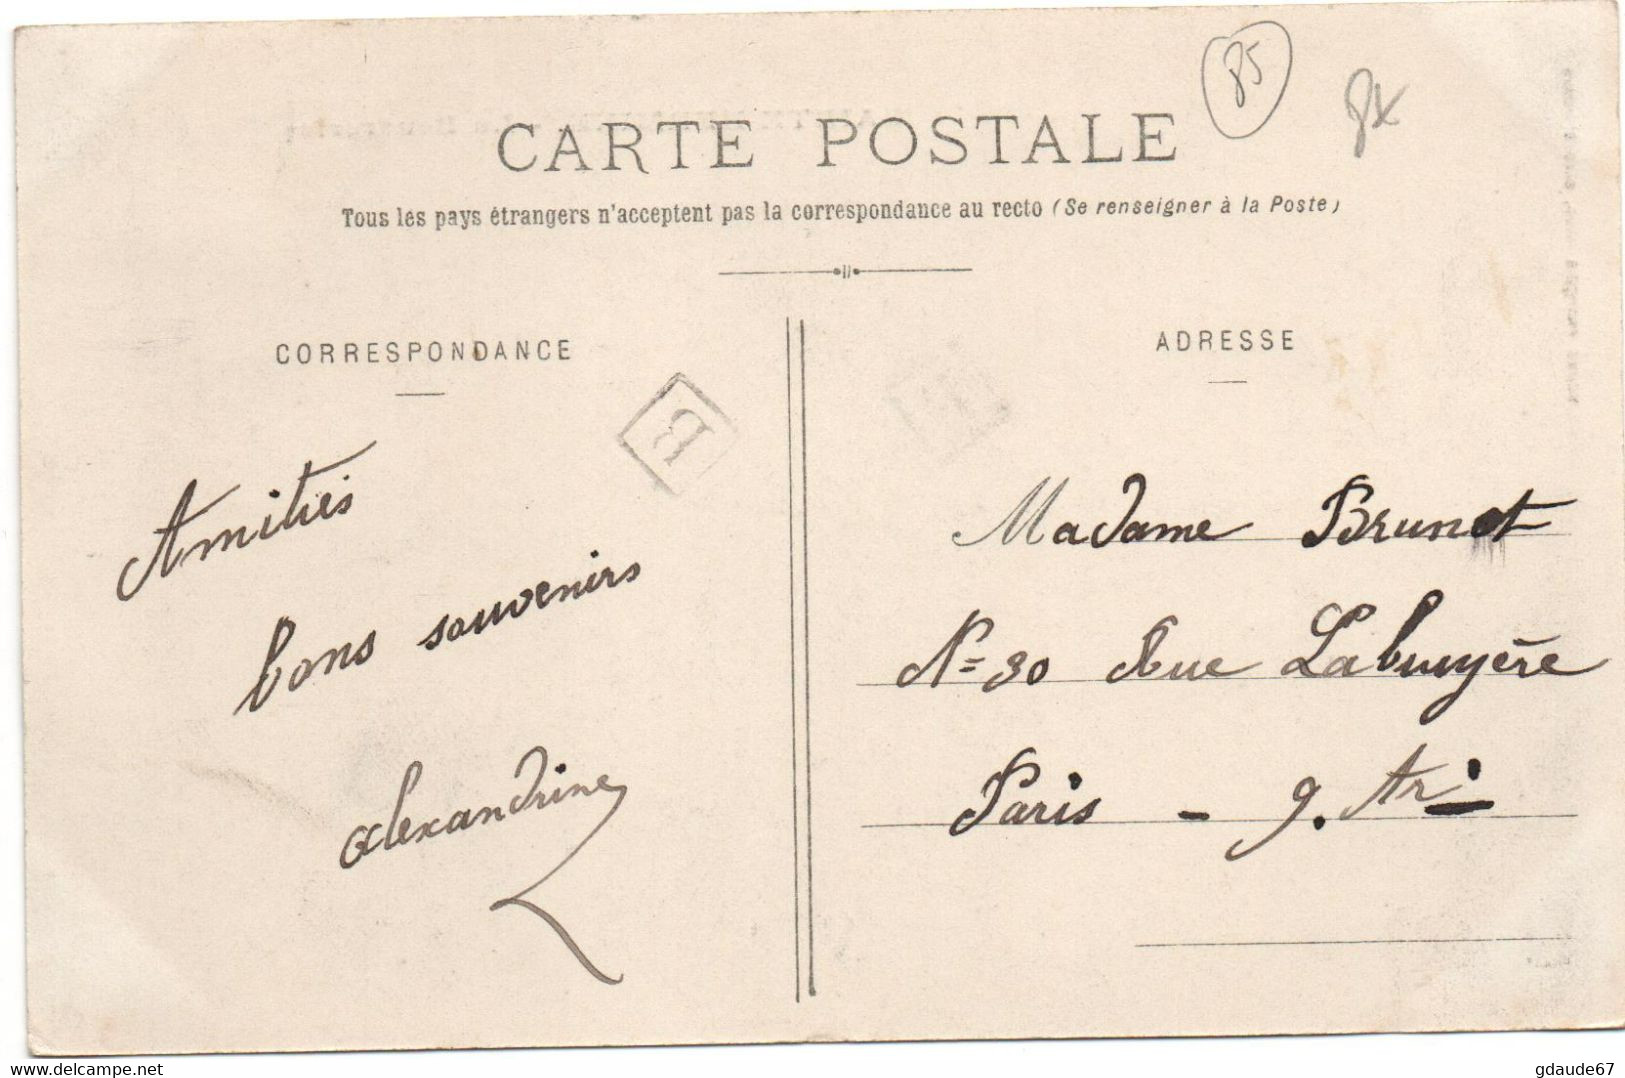 85
CARTE POSTALE
Tous les pays étrangers n'acceptent pas la correspondance au recto (Se renseigner à la Poste)
CORRESPONDANCE
ADRESSE
B
Amitiés
bons souvenirs
alexandrine
Madame Brunet
N= 30 Rue Labruyère
Paris - 9. Ar
delcampe.net
gdaude67